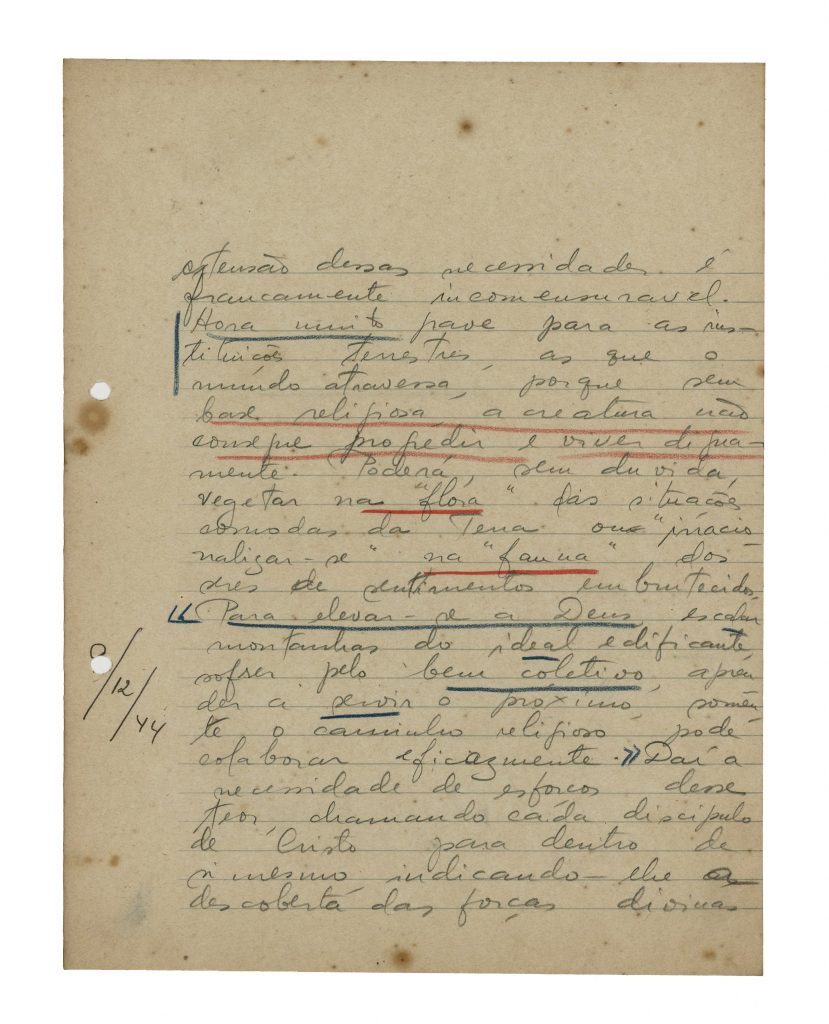 extensão dessas necessidades é
francamente incomensuravel.
Hora muito grave para as ins-
tituições terrestres, as que o
mundo atravessa, porque sem
base religiosa, a creatura não
consegue progredir e viver digna-
mente. Poderá, sem duvida,
vegetar na "flora" das situações
comodas da Terra ou "irracio-
nalizar-se" na "fauna" dos
seres de sentimentos embrutecidos.
« Para elevar-se a Deus, escalar
montanhas do ideal edificante,
sofrer pelo bem coletivo, apren-
der a servir o próximo, somen-
te o caminho religioso pode
colaborar eficazmente. » Daí a
necessidade de esforços desse
teor, chamando cada discipulo
de Cristo para dentro de
si mesmo, indicando-lhe a
descoberta das forças divinas
/12/44